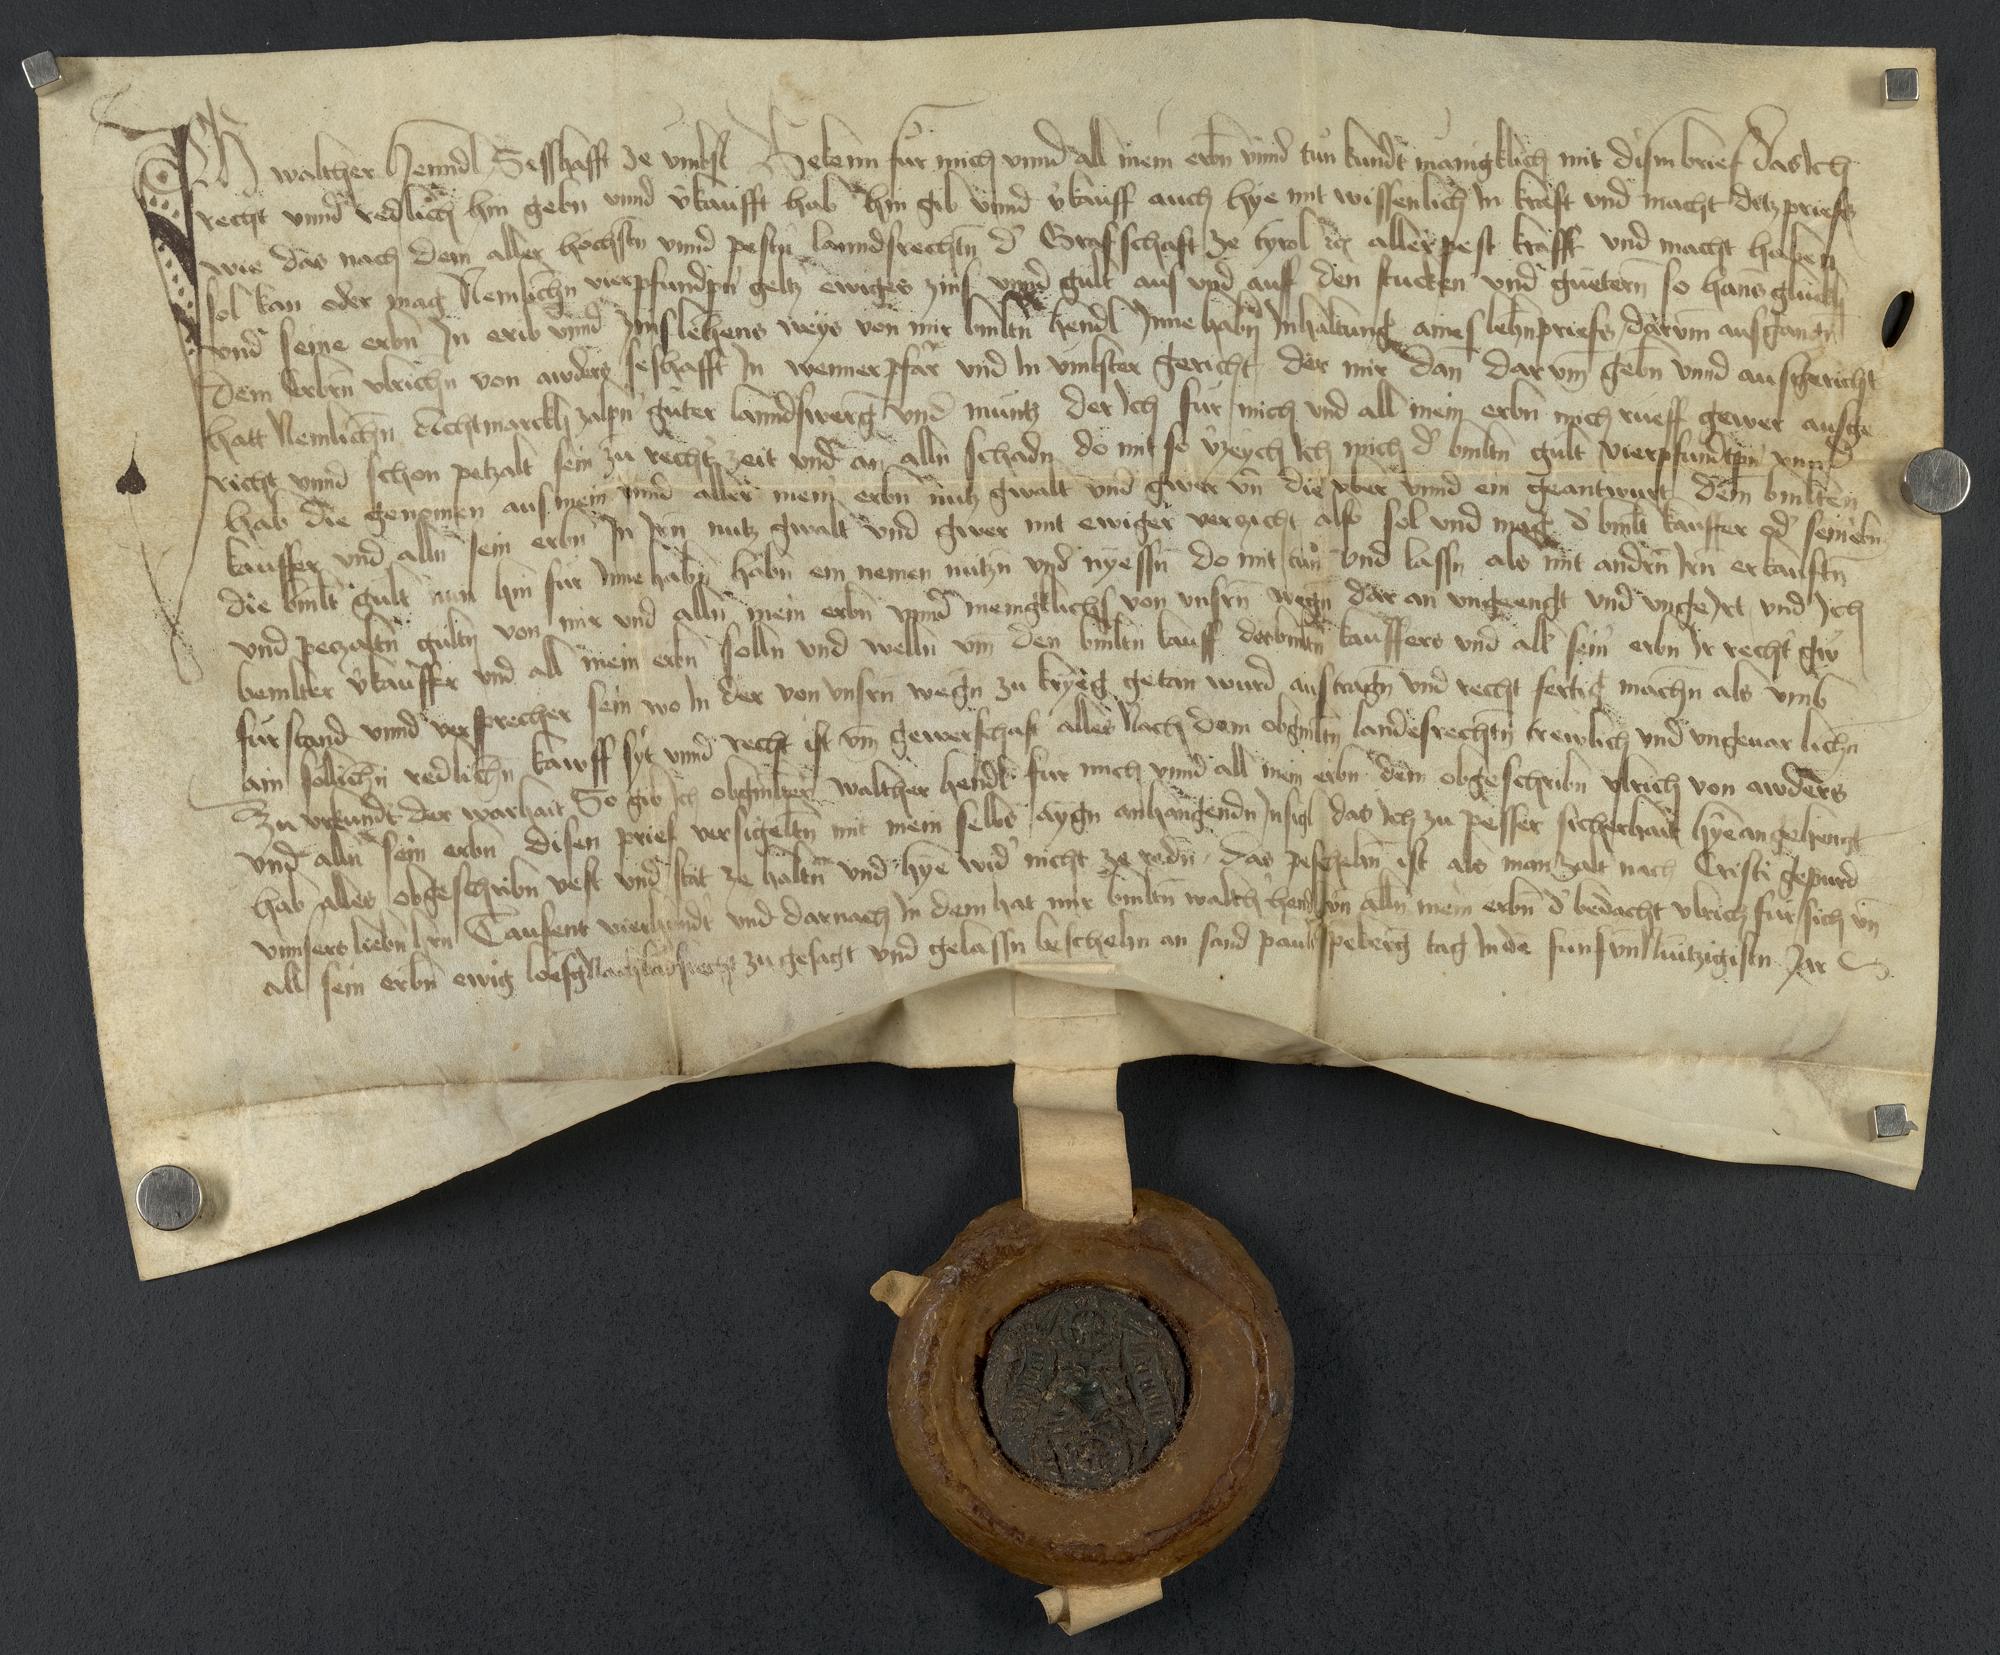 Ich walther Henndl Sesshafft ze vmbst Bekenn fur mich vnnd all mein erbn vnnd tun kundt manigklich mit disem brief das Ich
recht vnnd redlich hin gebn vnnd vkaufft hab hin gib vnnd vkauff auch hye mit wissenlich In kraft vnd macht ditz priefs
wie das nach dem aller hochstn vnnd pestn lanndsrechtn d Grafschaft ze tyrol aller pest krafft vnd macht haben
sol kan oder mag Nemlichn vierpfundpn geltz ewiges zins vnnd gult aus vnd auf den stucken vnd guetern so hanns
vnd seine erbn In erib vnnd zinslehens weys von mir bmltn hendl Inne habn Inhaltung aines lehnpriefs darvm ausgangn
dem Erbrn vlrichn von awders seshafft In wenner pfar vnd In vmbster gericht der mir dan dar vm gebn vnnd ausgericht
hatt Nemlichn Achtmarckh zalpn guter lanndswerg vnd muntz der Ich fur mich vnd all mein erbn mich rueff gewer ausge
richt vnnd schon petzalt sein zu recht zeit vnd an alln schadn do mit so vzeych Ich mich d bmltn gult vierpfundpn vnnd
hab die genomen aus mein vnnd aller meinr erbn nutz gwalt vnd gwer vn die vber vnnd ein geantwurt dem bmlten
kauffer vnd alln sein erbn In Irn nutz gwalt vnd gwer mit ewiger verzicht also sol vnd mag d bmlt kauffer od sein ebn
die bmlt gult nun hin fur Inne habn habn ein nemen nutzn vnd nyessn do mit tun vnd lassn als mit andrn Irn erkauftn
vnd petzaltn gultn von mir vnd alln mein erbn vnnd meingklichs von vnsrn wegn dar an vngeengt vnd vngeIrt vnd Ich
bemlter vkauffer vnd all mein erbn solln vnd welln vm den bmltn kauff des bmltn kauffers vnd all sein erbn Ir recht gw
fur stand vnnd versprecher sein wo In der von vnsrn wegn zu kryeg getan wurd austragn vnd recht fertig machn als vmb
ain solichn redlichn kawff syt vnnd recht ist vm gewerschaft alles Nach dem obgmltn landesrechtn trewlich vnd vngeuarlichn
Zu vrkundt der warhait So gib Ich obgmlter walther hendl fur mich vnnd all mein erbn dem obgeschribn vlrich von awders
vnd alln sein erbn disen prief versigeltn mit mein selbs aygn anhangendn Insigl das Ich zu pesser sicherhait hyean gehengt
hab alles obgeschribn vest vnd stat ze haltn vnd hye wid nicht ze redn das peschehn ist als man zalt nach Cristi gepurd
vnnsers liebn hrn Tausent vierhundt vnd darnach In dem hat mir bmltn walth hendl vn alln mein erbn d bedacht vlrich fur sich vn
all sein erbn ewig losung zu gesagt vnd gelassn beschehn an sand pauls peberg tag In de funf vn Jar